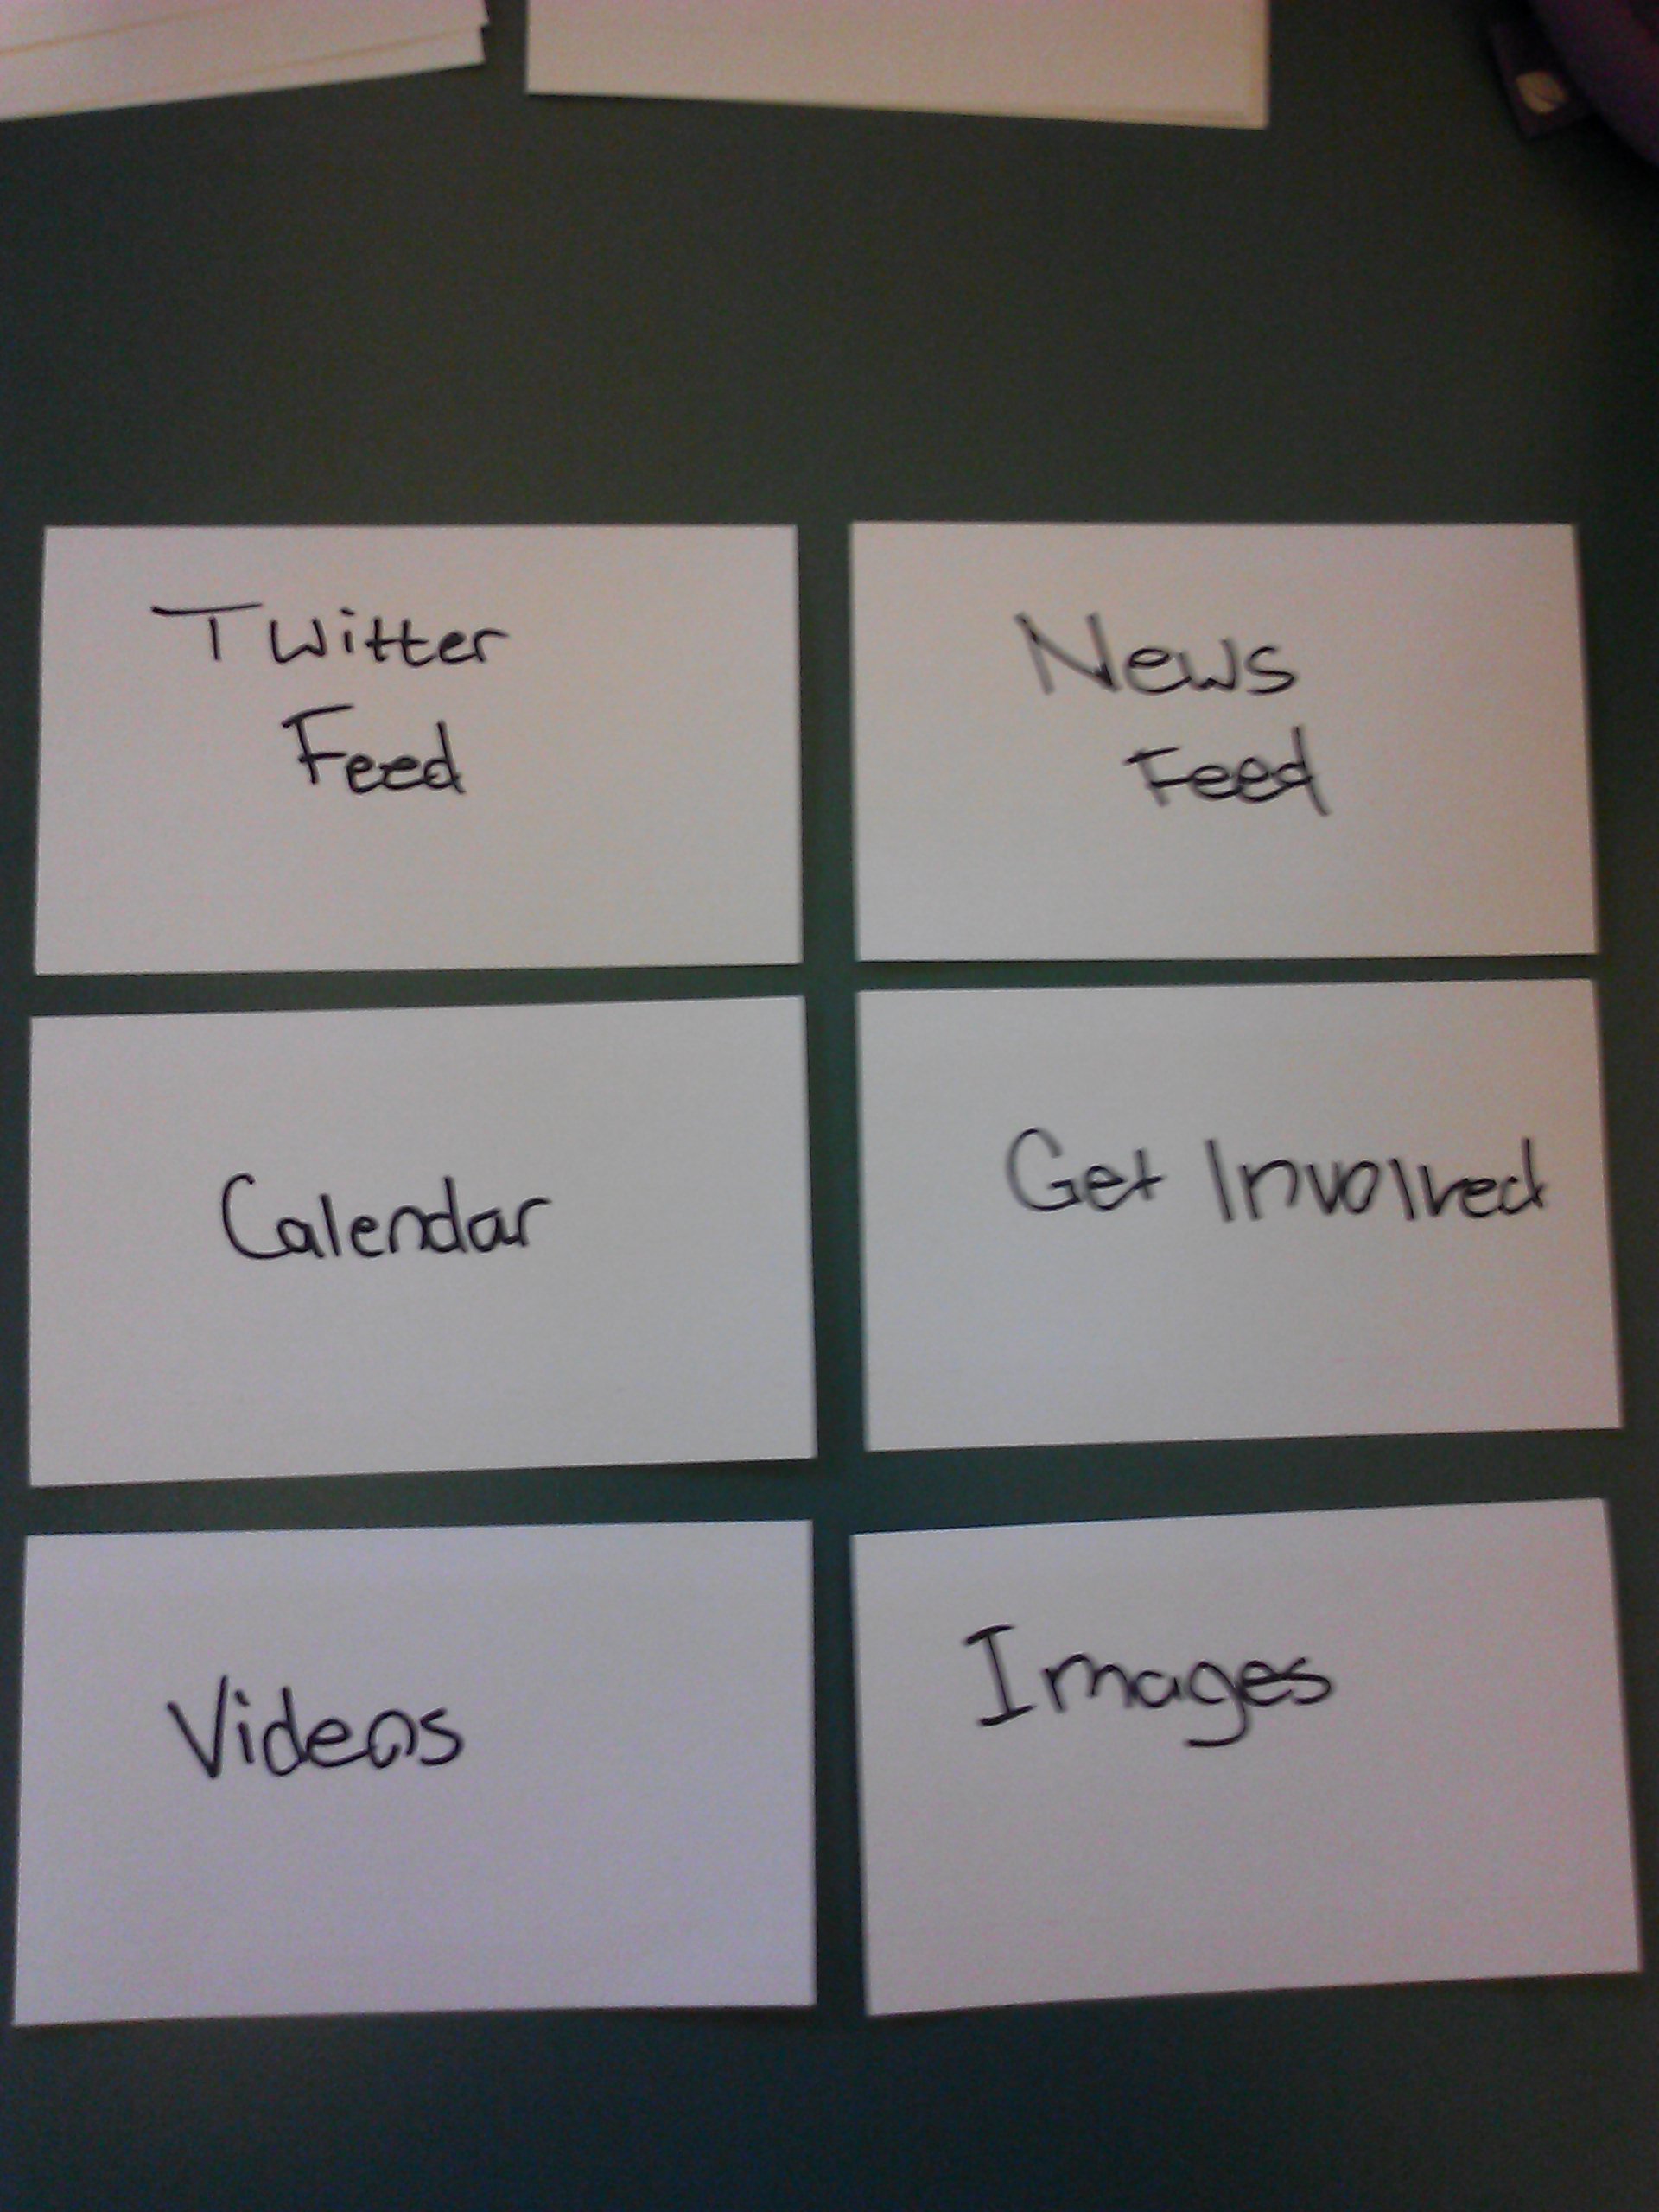 Twitter
Feed
News
Feed
Calendar
Get Involved
Videos
Images